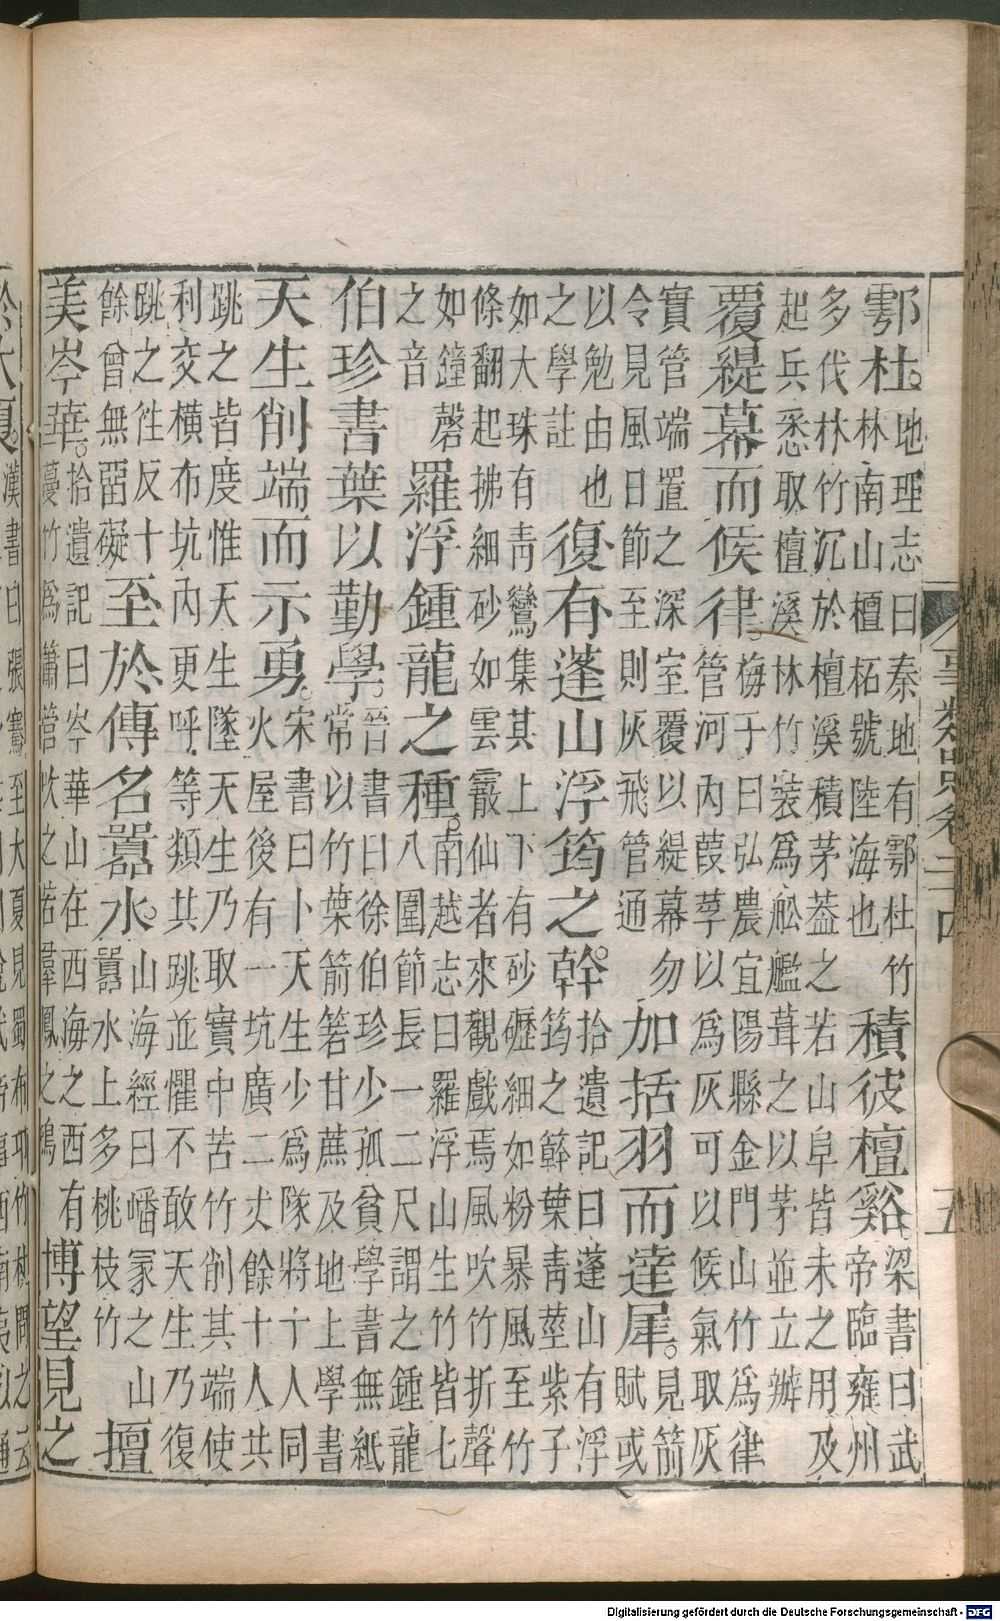 鄠杜。地理志曰秦地有鄠杜竹
林南山檀柘號陸海也
積彼檀谿。梁書曰武
帝臨雍州
多伐林竹沉於檀溪積茅葢之若山阜皆未之用及
起兵悉取檀溪林竹裝爲舩艦葺之以茅並立辦
覆緹幕而候律。梅子曰弘農宜陽縣金門山竹爲律
管河內葭莩以爲灰可以候氣取灰
實管端置之深室覆以緹幕勿
令見風日節至則灰飛管通
加括羽而達犀。見箭
賦或
以勉由也
之學註
復有蓬山浮筠之幹。拾遺記曰蓬山有浮
筠之簳葉青莖紫子
如大珠有靑鸞集其上下有砂礰細如粉暴風至竹
條翻起拂細砂如雲霰仙者來觀戲焉風吹竹折聲
如鐘磬
之音
羅浮鍾龍之種。南越志曰羅浮山生竹皆七
八圍節長一二尺謂之鍾龍
伯珍書葉以勤學。晉書曰徐伯珍少孤貧學書無紙
常以竹葉箭箬甘蔗及地上學書
天生削端而示勇。宋書曰卜天生少爲隊將十人同
火屋後有一坑廣二丈餘十人共
跳之皆度惟天生墜天生乃取實中苦竹削其端使
利交橫布坑內更呼等類共跳並懼不敢天生乃復
跳之徃反十
餘曾無罶礙
至於傳名嚻水。山海經曰嶓冢之山
嚻水上多桃枝竹
擅
美岑華。拾遺記曰岑華山在西海之西有
蔓竹爲簫管吹之若羣鳳之鳴
博望見之
事類賦卷二十四
五
於大夏。漢書曰張騫至大夏見蜀布邛竹杖問之云
Digitalisierung gefördert durch die Deutsche Forschungsgemeinschaft - DFG